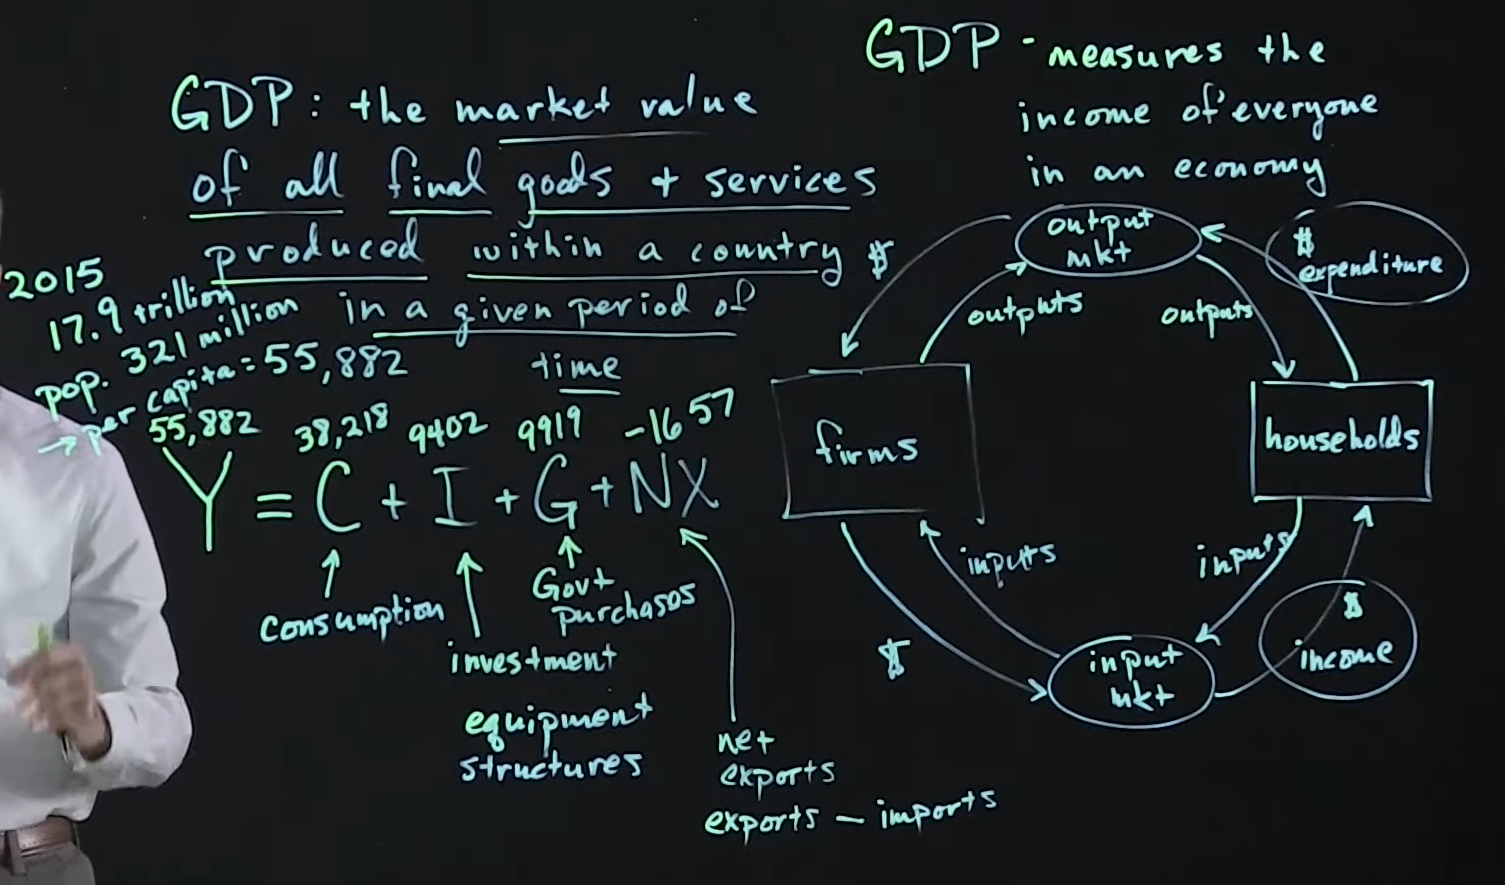 GDP: the market value
of all final goods + services
produced within a country
in a given period of
time
2015
17.9 trillion
pop. 321 million
→ per capita = 55,882
55,882 38,218 9402 9919 -1657
Y = C + I + G + NX
consumption
investment
equipment
structures
Govt
purchases
net
exports
exports - imports
GDP - measures the
income of everyone
in an economy
output
mkt
$
$
expenditure
outputs
outputs
firms
households
inputs
inputs
$
$
income
input
mkt